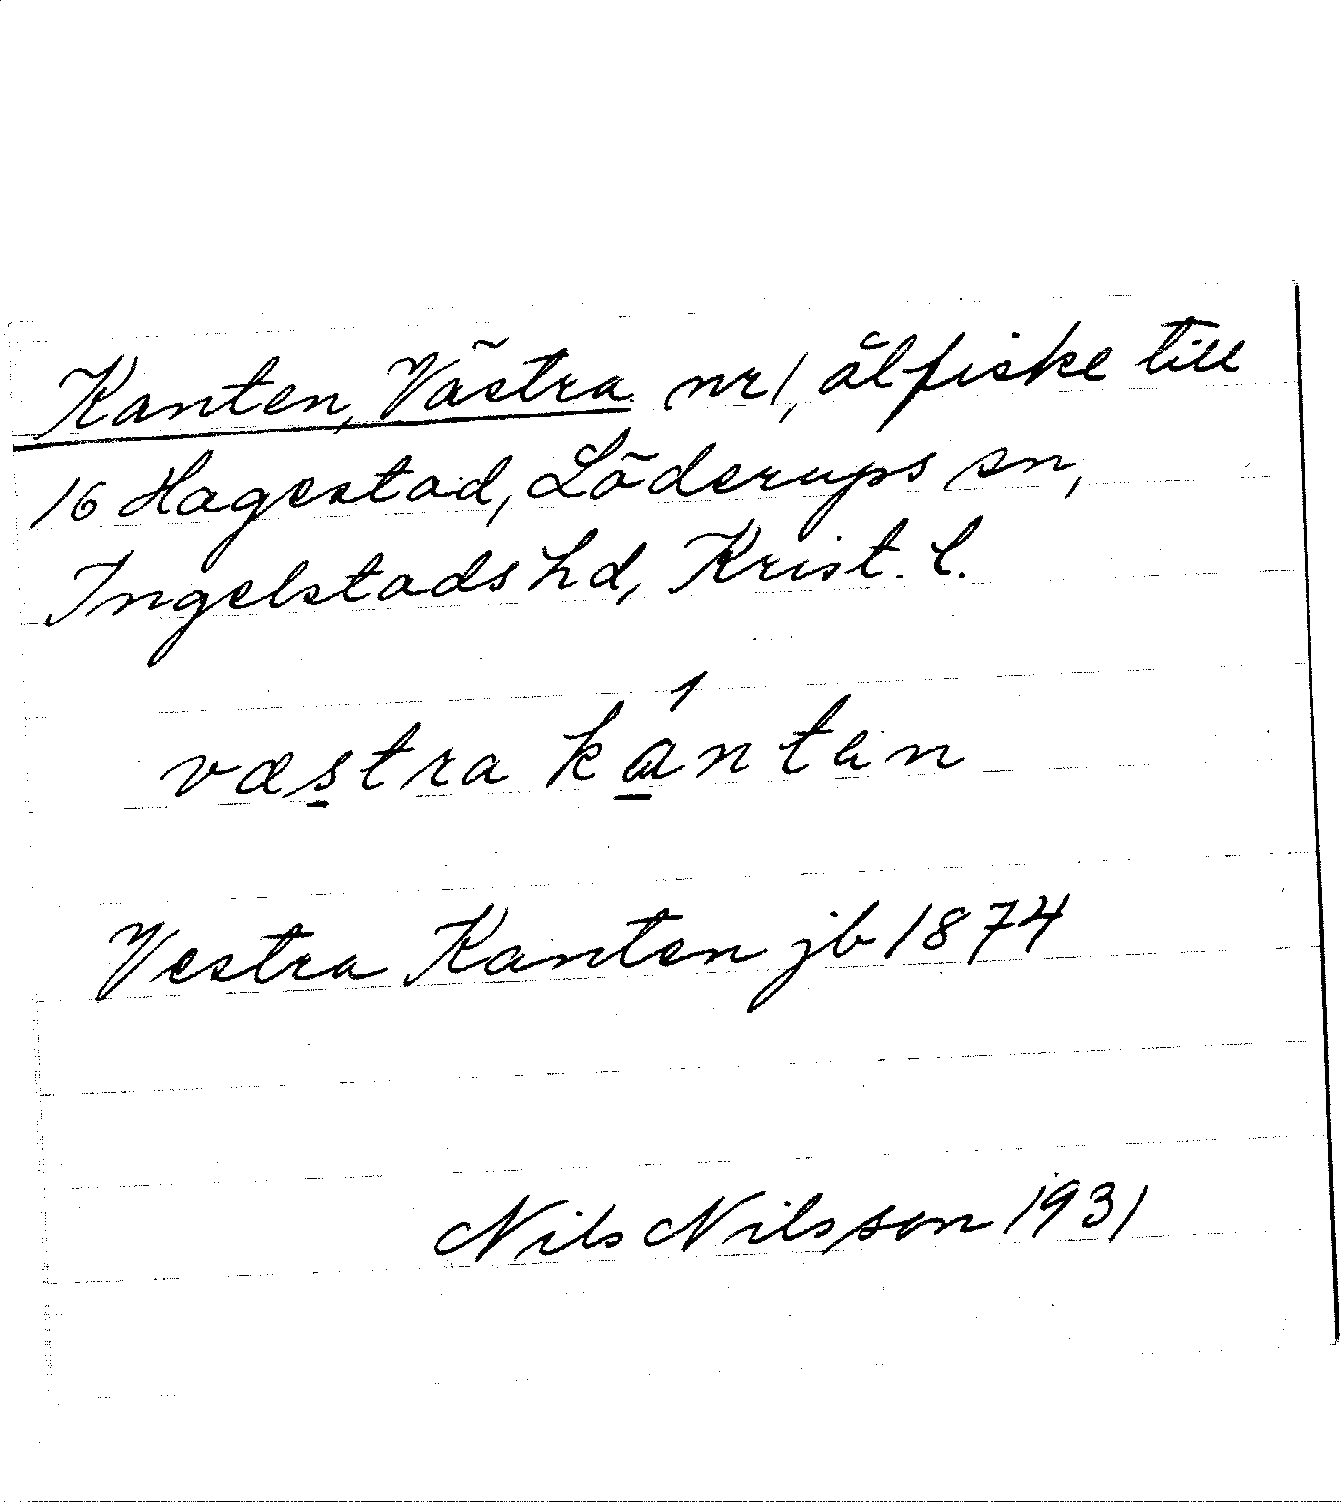 Kanten, Västra nr 1, ålfiske till
16 Hagestad, Löderups sn,
Ingelstads hd, Krist. l.
væstra kánten
Vestra Kanten jb 1874
Nils Nilsson 1931